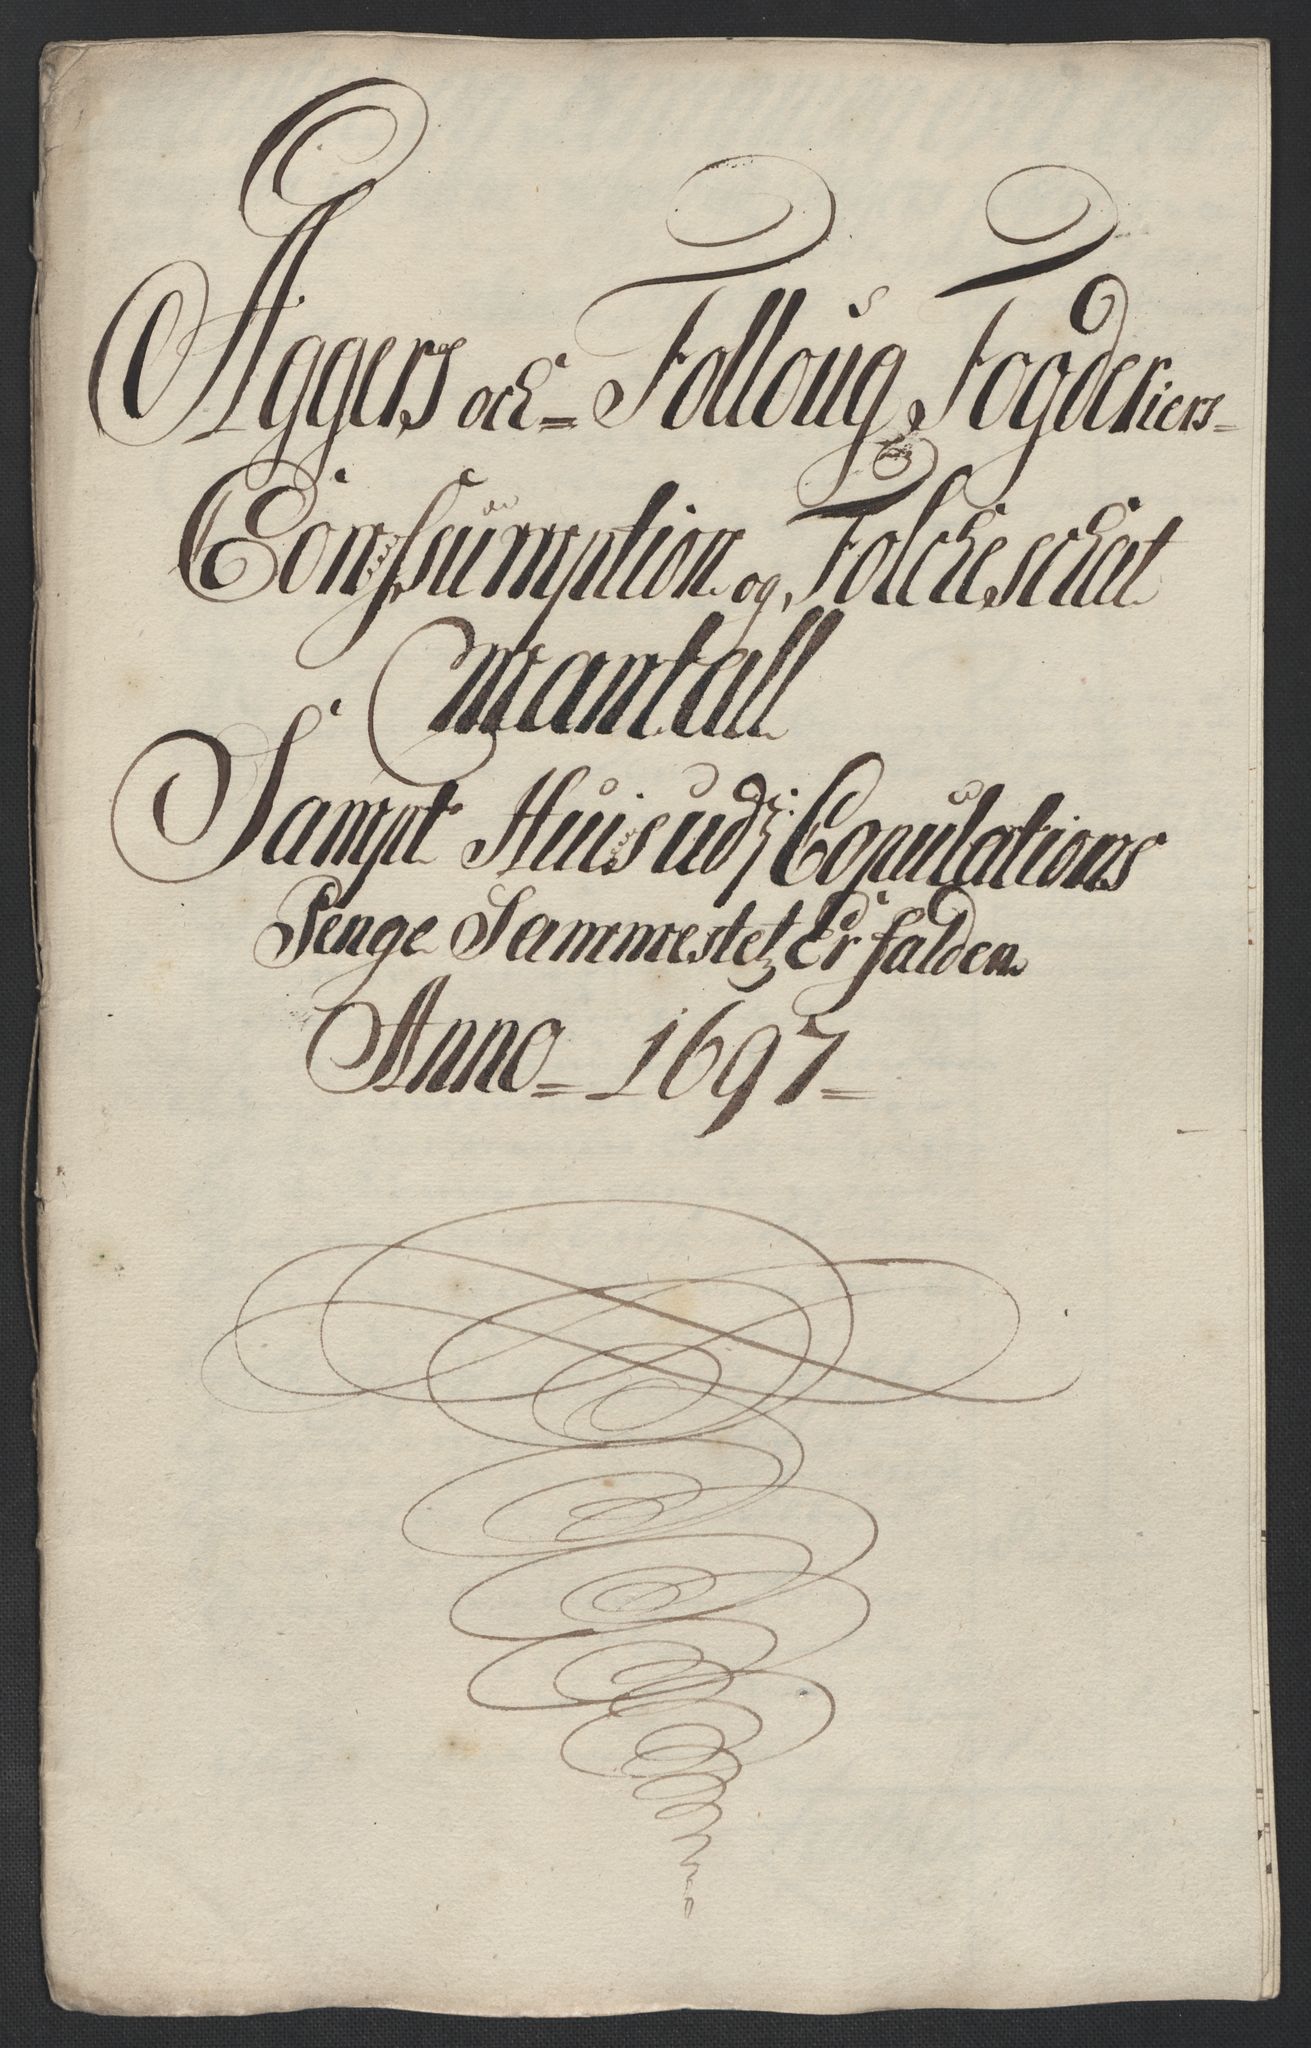 Aggers och= Follougs Fogderiers=
Consumption og Folcheschat
Mantall
Sampt Huis udj Copulations
Penge Sammestetz Er falden
Anno= 1697=